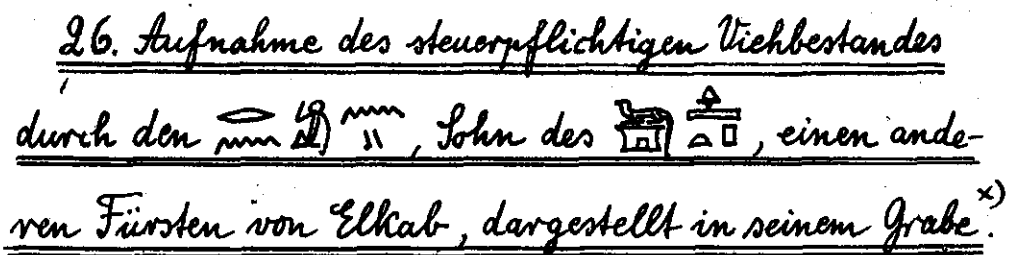 26. Aufnahme des steuerpflichtigen Viehbestandes
durch den , Sohn des 𓆊𓊵𓏏𓊪, einen ande-
ren Fürsten von Elkab, dargestellt in seinem Grabe x).